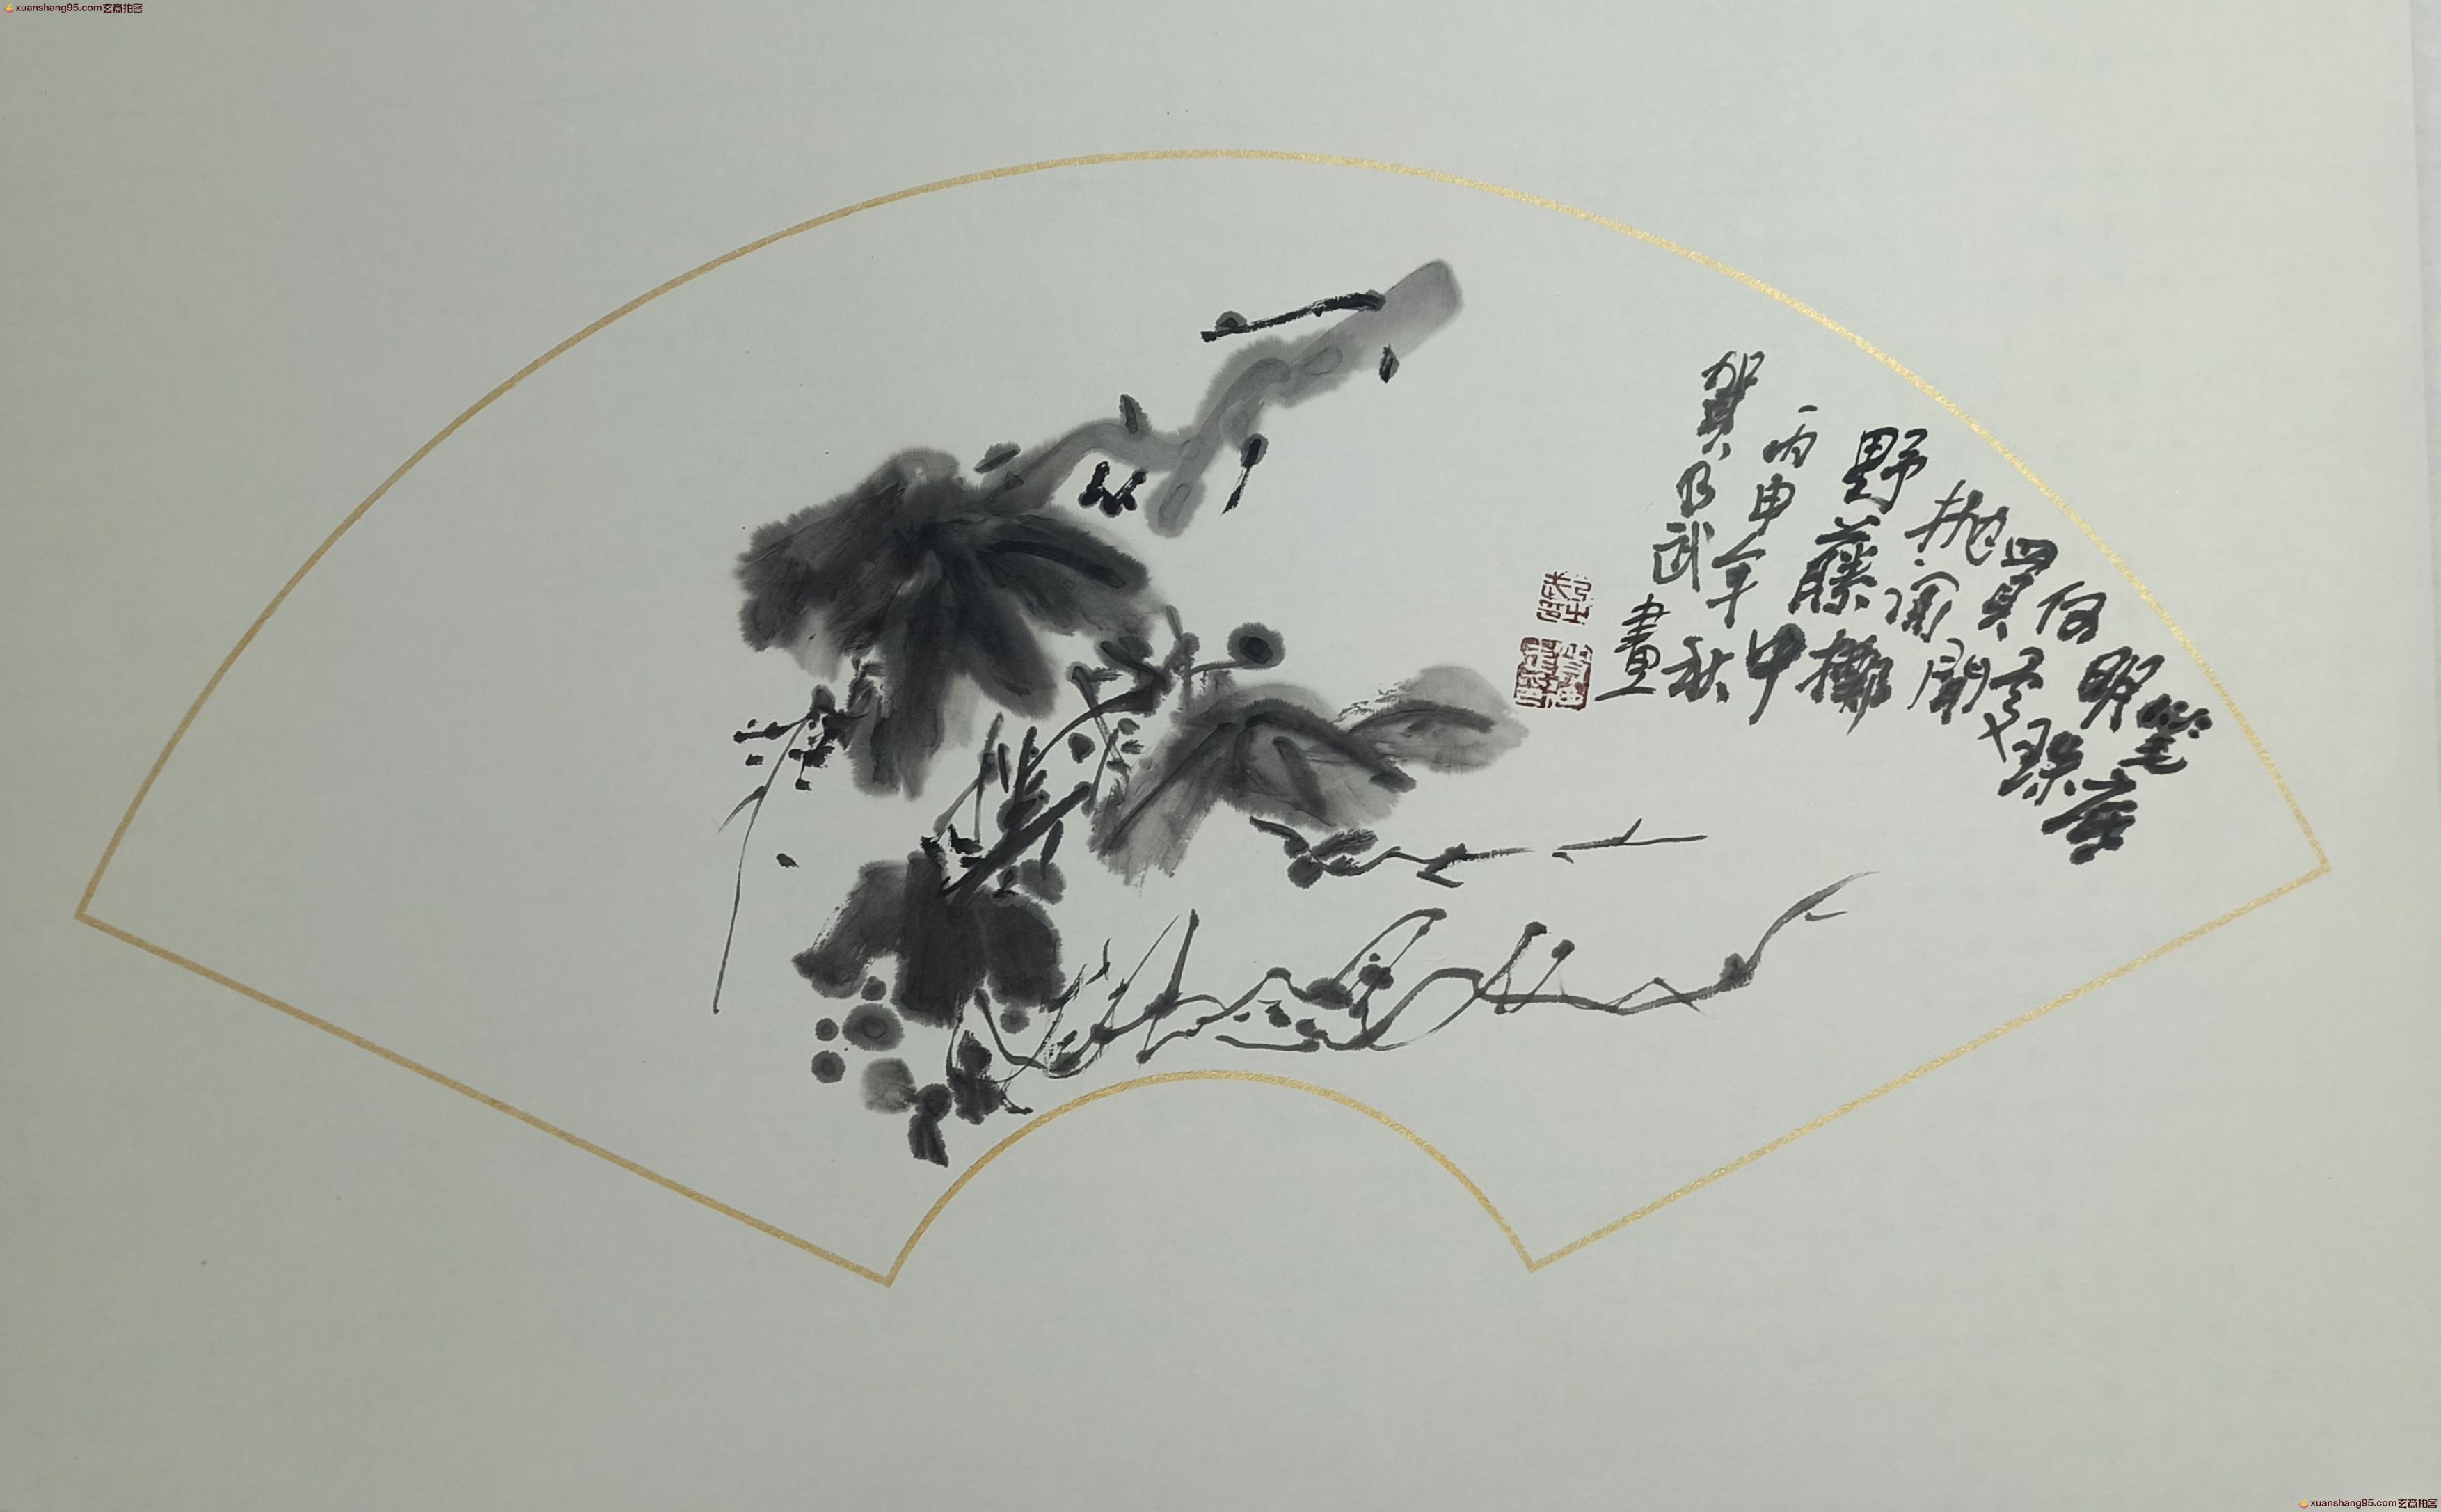 xuanshang95.com玄商拍客
笔底
明珠
何處
賣閒
抛閒擲
野藤中
丙申年秋
賀乃武畫
xuanshang95.com玄商拍客